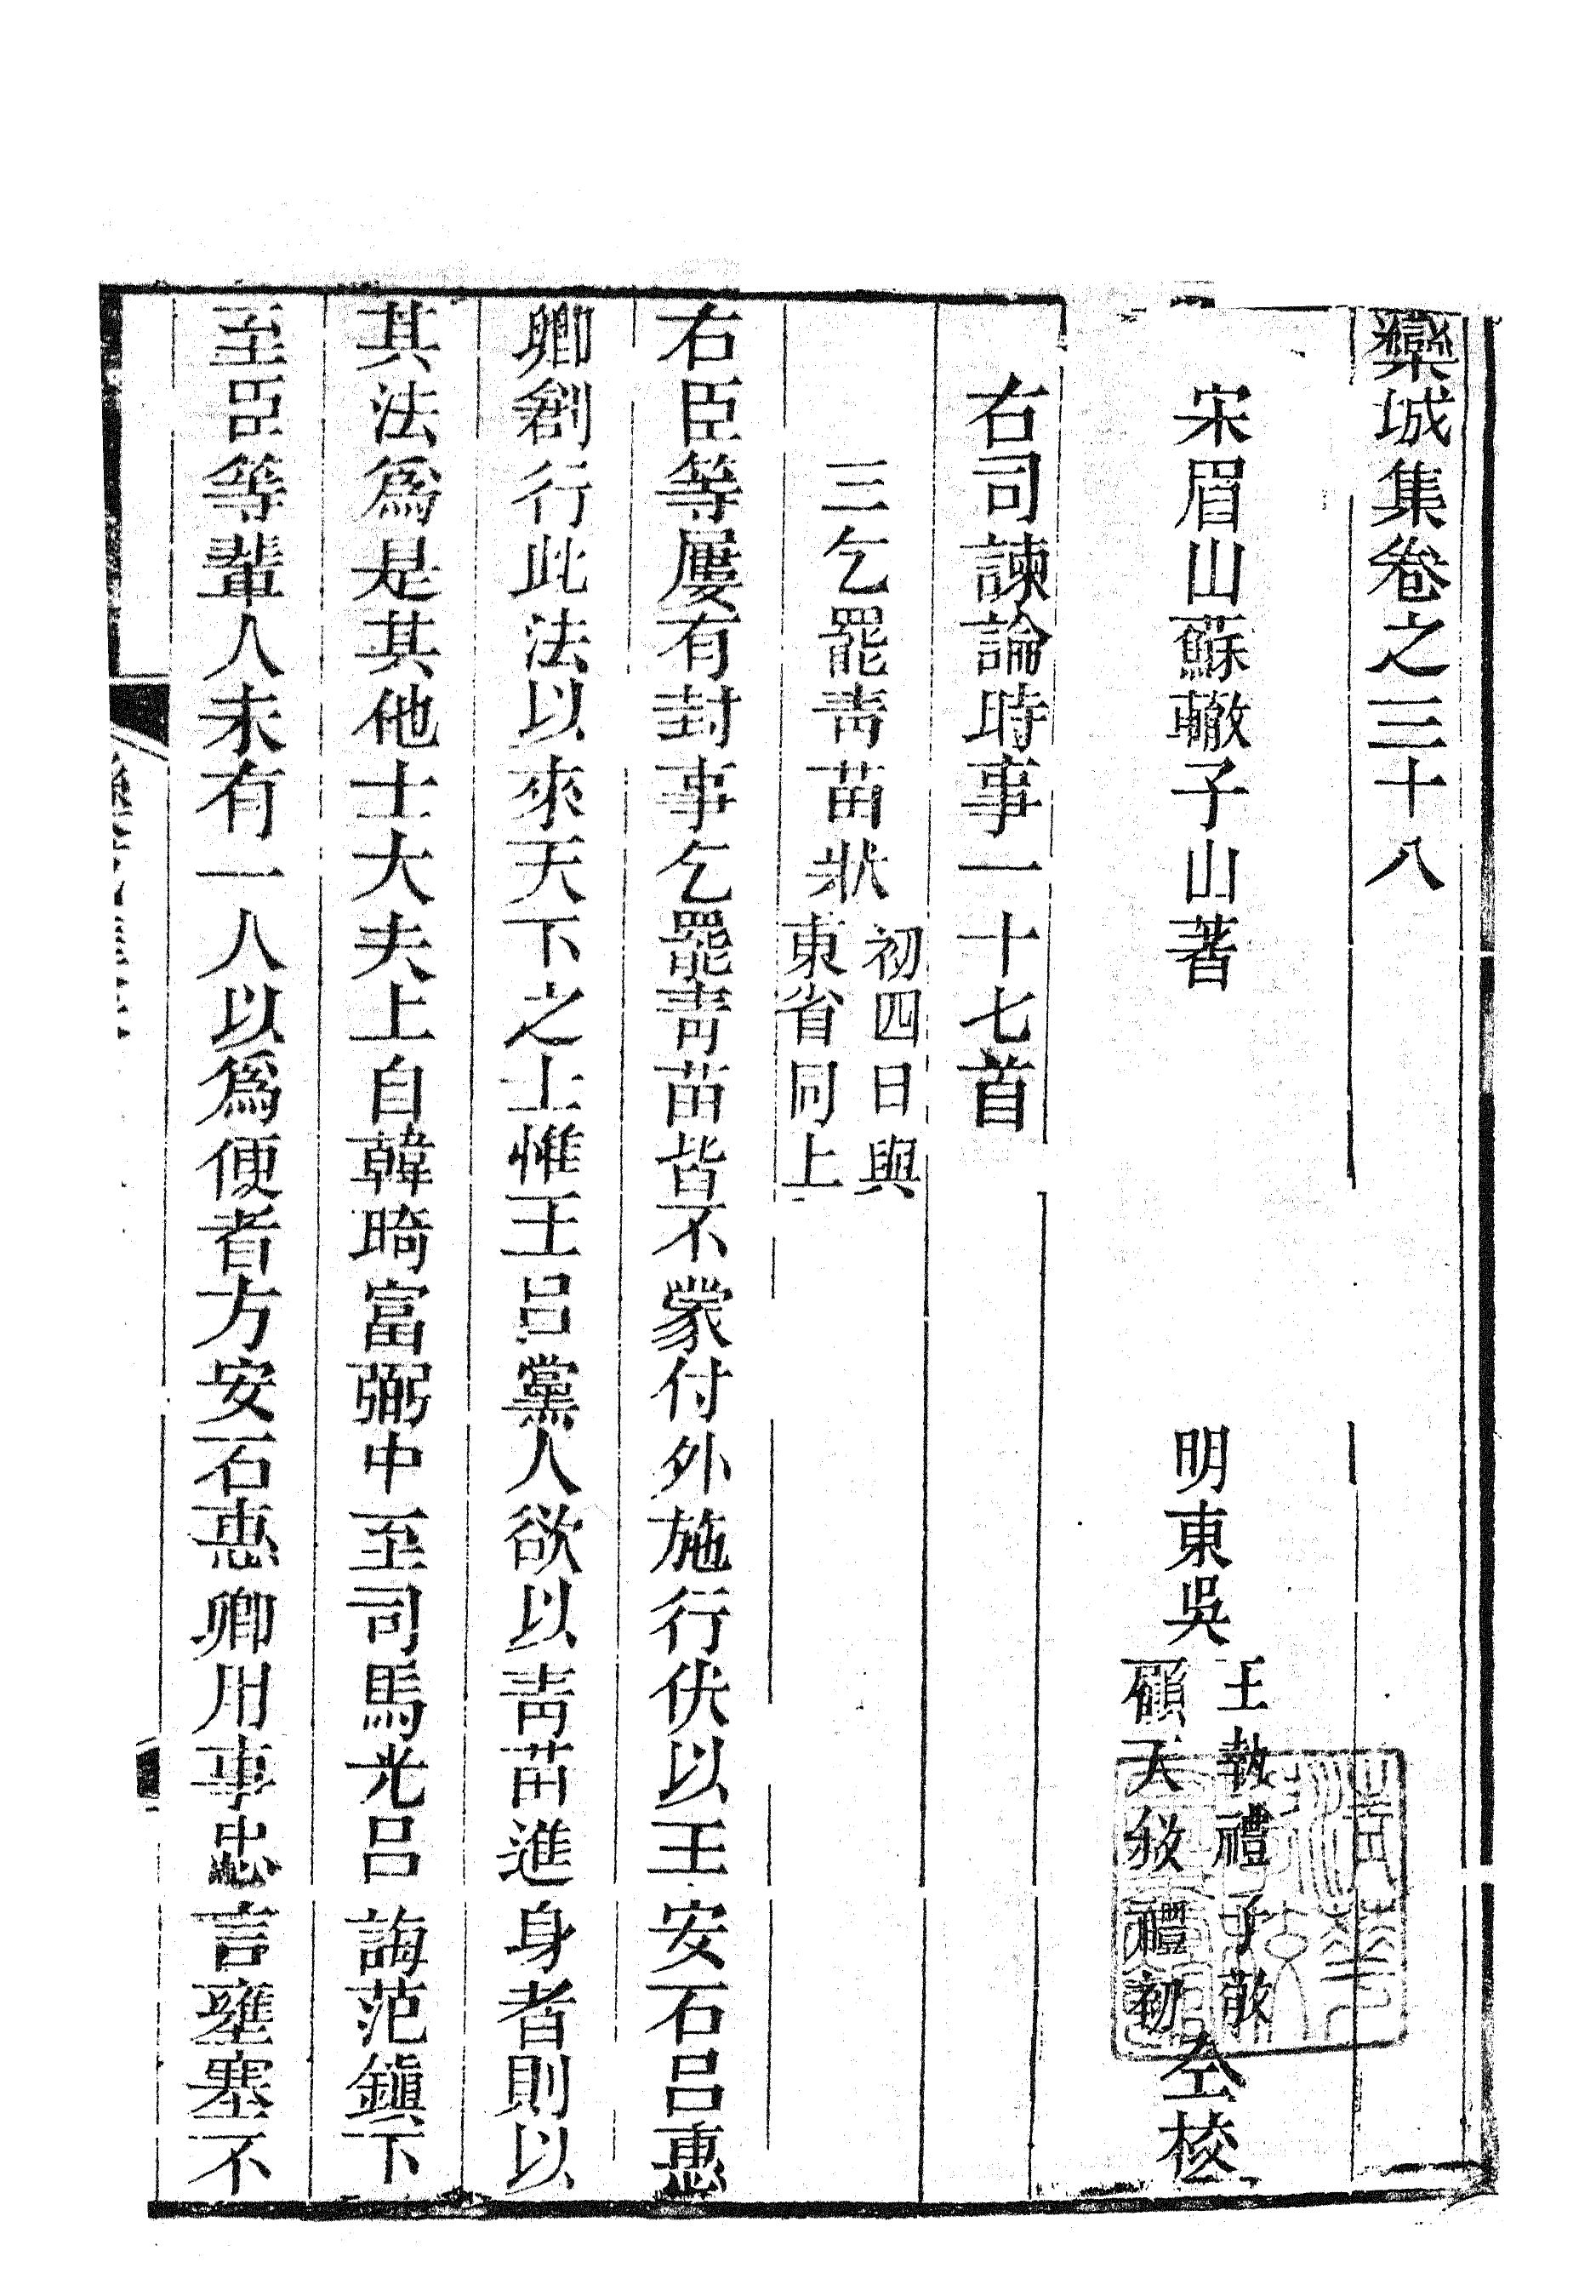 欒城集卷之三十八
宋眉山蘇轍子山著
明東吳
王執禮子敬
顧天敘禮初
仝校
右司諫論時事一十七首
三乞罷靑苗狀
初四日與
東省同上
右臣等屢有封事乞罷靑苗皆不蒙付外施行伏以王安石呂惠
卿創行此法以來天下之士惟王呂黨人欲以靑苗進身者則以
其法爲是其他士大夫上自韓琦富弼中至司馬光呂誨范鎭下
至臣等輩人未有一人以爲便者方安石惠卿用事忠言壅塞不